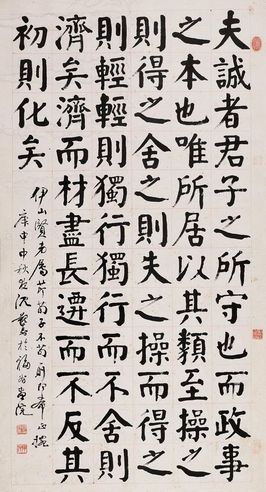 夫誠者君子之所守也而政事
之本也唯所居以其類至操
則得之舍之則失之操而得之
則輕輕則獨行獨行而不舍則
濟矣濟而材盡長遷而不反其
初則化矣
伊山賢弟屬荀子不苟
庚申中秋沈於福州畫院